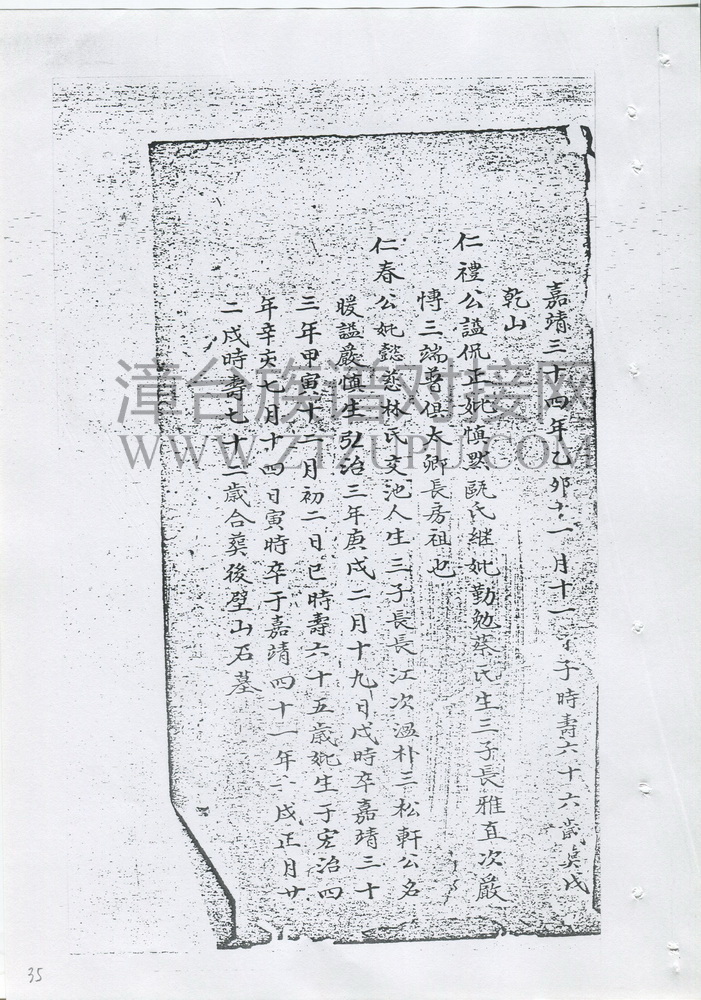 嘉靖三十四年乙卯十一月十一子時壽六十六歲奠戌
乾山
仁禮公謚侃正妣慎默甌氏継妣勤勉蔡氏生三子長雅直次嚴
慱三端普俱太卿長房祖也
仁春公妣懿慈林氏交池人生三子長長江次溫朴三松軒公名
暖謚嚴慎生弘治三年庚戌二月十九日戌時卒嘉靖三十
三年甲寅十二月初二日巳時壽六十五歲妣生于宏治四
年辛亥七月十四日寅時卒于嘉靖四十一年戌正月廿
二戌時壽七十二歲合葬後壁山石墓
漳台族谱对接网
WWW.ZTZUPU.COM
35